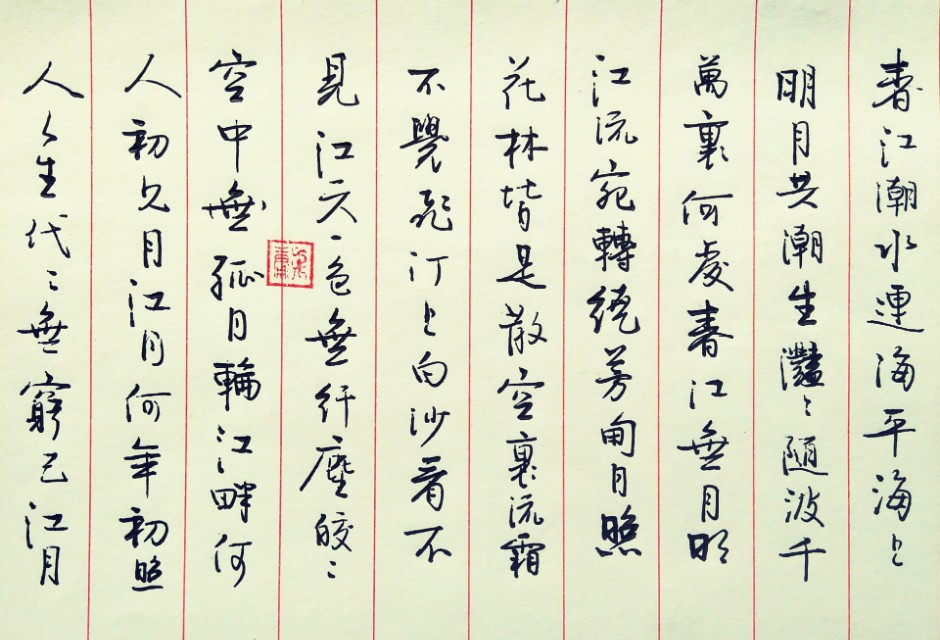 春江潮水連海平海上
明月共潮生灩〻随波千
萬裏何處春江無月明
江流宛轉繞芳甸月照
花林皆是散空裏流霜
不覺飛汀上白沙看不
見江天一色無纤塵皎〻
空中無孤月輪江畔何
人初見月江月何年初照
人人生代〻無窮已江月